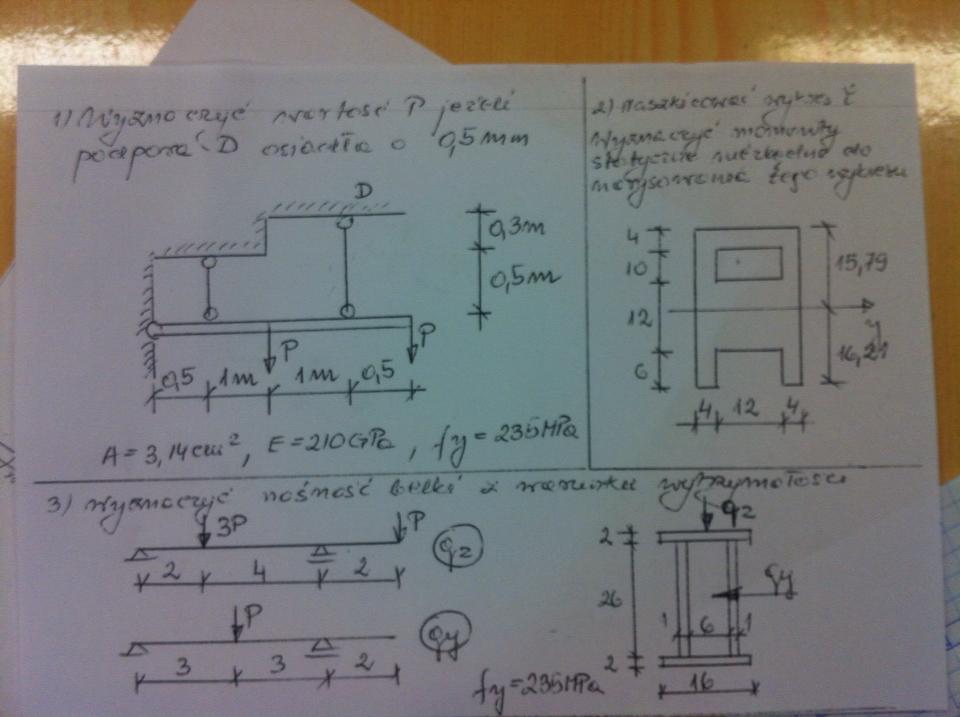 1) Wyznaczyć wartość P jeżeli
podpora D osiadła o 0,5mm
D
0,3m
0,5m
P
P
0,5 1m 1m 0,5
A = 3,14cm², E = 210GPa, fy = 235MPa
2) naszkicować wykres τ
Wyznaczyć momenty
statyczne niezbędne do
narysowania tego wykresu
4
10
12
6
15,79
16,21
y
4 12 4
3) Wyznaczyć nośność belki z warunku wytrzymałości
3P
P
qz
2 4 2
P
qy
3 3 2
fy = 235MPa
qz
qy
2
26
2
1 6 1
16